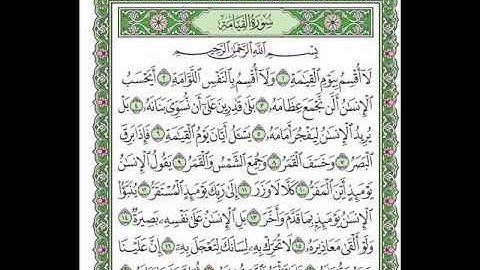 سُورَةُ القِيَامَةِ
بِسْمِ اللَّهِ الرَّحْمَٰنِ الرَّحِيمِ
لَا أُقْسِمُ بِيَوْمِ الْقِيَامَةِ ١ وَلَا أُقْسِمُ بِالنَّفْسِ اللَّوَّامَةِ ٢ أَيَحْسَبُ
الْإِنسَانُ أَلَّن نَّجْمَعَ عِظَامَهُ ٣ بَلَىٰ قَادِرِينَ عَلَىٰ أَن نُّسَوِّيَ بَنَانَهُ ٤ بَلْ
يُرِيدُ الْإِنسَانُ لِيَفْجُرَ أَمَامَهُ ٥ يَسْأَلُ أَيَّانَ يَوْمُ الْقِيَامَةِ ٦ فَإِذَا بَرِقَ
الْبَصَرُ ٧ وَخَسَفَ الْقَمَرُ ٨ وَجُمِعَ الشَّمْسُ وَالْقَمَرُ ٩ يَقُولُ الْإِنسَانُ
يَوْمَئِذٍ أَيْنَ الْمَفَرُّ ١٠ كَلَّا لَا وَزَرَ ١١ إِلَىٰ رَبِّكَ يَوْمَئِذٍ الْمُسْتَقَرُّ ١٢ يُنَبَّأُ
الْإِنسَانُ يَوْمَئِذٍ بِمَا قَدَّمَ وَأَخَّرَ ١٣ بَلِ الْإِنسَانُ عَلَىٰ نَفْسِهِ بَصِيرَةٌ ١٤
وَلَوْ أَلْقَىٰ مَعَاذِيرَهُ ١٥ لَا تُحَرِّكْ بِهِ لِسَانَكَ لِتَعْجَلَ بِهِ ١٦ إِنَّ عَلَيْنَا